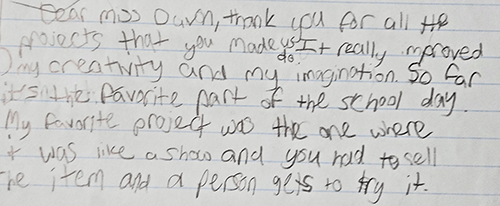 Dear miss Dawn, thank you for all the
projects that you made us do. It really improved
my creativity and my imagination. So far
it's the favorite part of the school day.
My favorite project was the one where
it was like a show and you had to sell
the item and a person gets to try it.